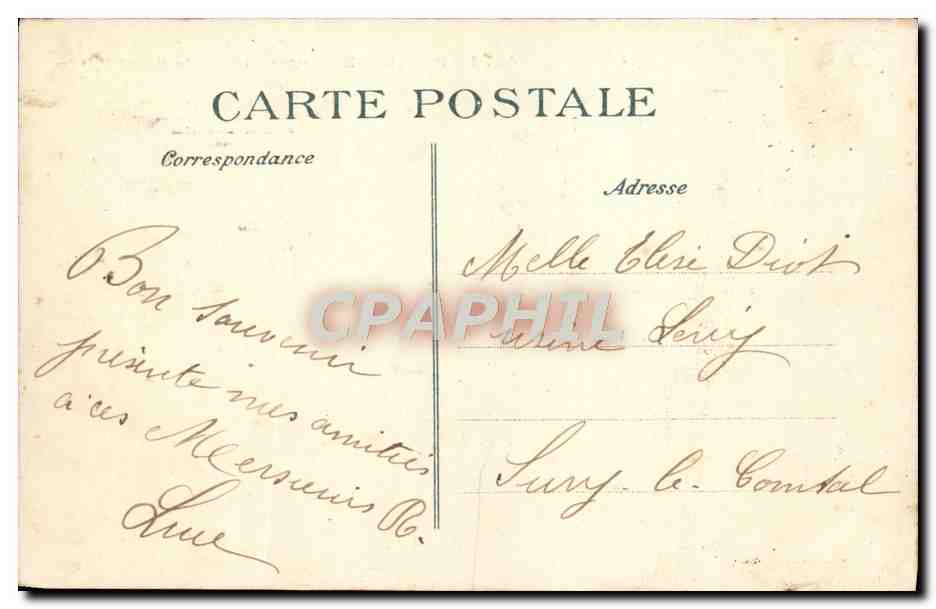 CARTE POSTALE
Correspondance
Adresse
Bon souvenir
présente mes amitiés
à ces Messieurs R.
Melle Elise Diot
usine
Sury-le-Comtal
CPAPHIL